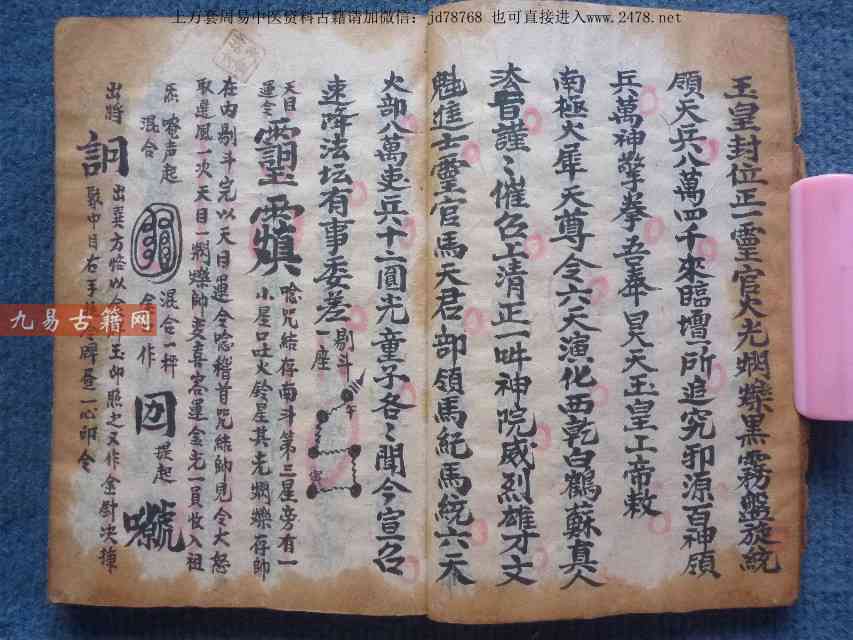 上万套周易中医资料古籍请加微信：jd78768 也可直接进入www.2478.net
玉皇封位正一靈官火光烱爍黒霧盤旋統
領天兵八萬四千來臨壇所追究邪源百神領
兵萬神擎拳吾奉昊天玉皇上帝敕
南極火犀天尊令六天演化西乾白鶴蘇真人
法旨謹〻催召上清正一吽神院威烈雄才文
魁進士靈官馬天君部領馬紀馬統六天
火部八萬吏兵十二圓光童子各〻聞今宣召
速降法坛有事委差
剔斗
一座
天目
運令
唸咒結存南斗第三星旁有一
小星口吐火铃星其光烱爍存帥
在內剔斗完以天目運令唸稽首咒結帥見令大怒
取巽風一次天目一烱爍帥英喜容運金光一員收入祖
炁 声起
混合
混合一秤
作
提起
出將
出巽方 以 玉印照之又作金針决揮
中目右手 一心印令
九易古籍网